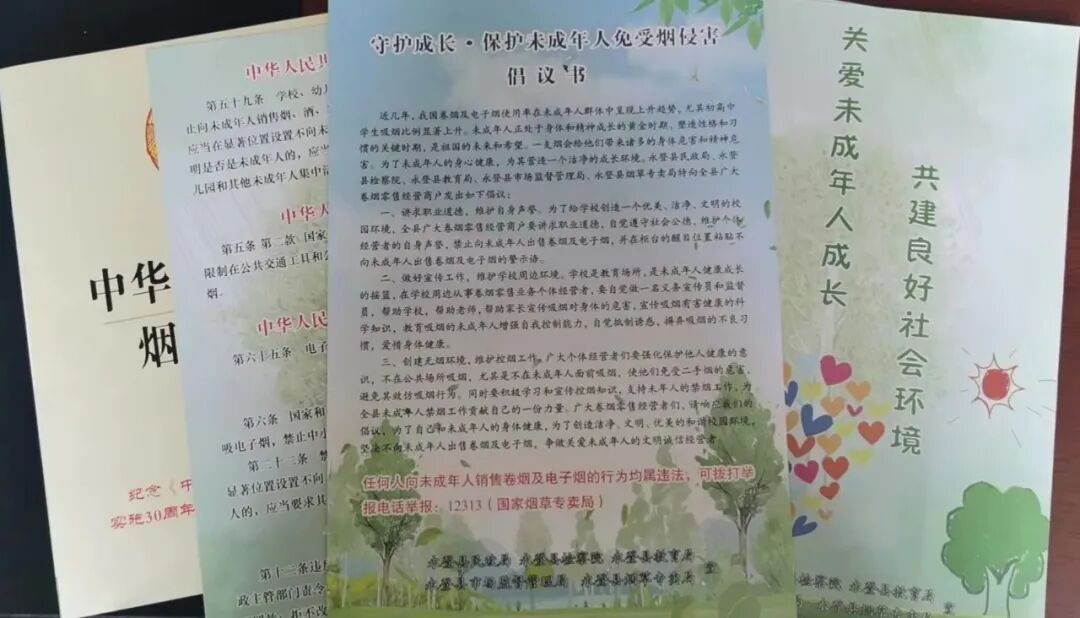 中华
烟
纪念《中
实施30周年
中华人民共
第五十九条 学校、幼儿
止向未成年人销售烟、酒、
应当在显著位置设置不向未
明是否是未成年人的，应当
儿园和其他未成年人集中活
中华人
第五条 第二款 国家
限制在公共交通工具和公
烟。
中华人民
第六十五条 电子
第六条 国家和
吸电子烟，禁止中小
第二十二条 禁
显著位置设置不向
人的，应当要求其
第十二条违
政主管部门责令
拒不改
守护成长·保护未成年人免受烟侵害
倡议书
近几年，我国卷烟及电子烟使用率在未成年人群体中呈现上升趋势，尤其初高中
学生吸烟比例显著上升。未成年人正处于身体和精神成长的黄金时期、塑造性格和习
惯的关键时期，是祖国的未来和希望。一支烟会给他们带来诸多的身体危害和精神危
害。为了未成年人的身心健康，为其营造一个洁净的成长环境。永登县民政局、永登
县检察院、永登县教育局、永登县市场监督管理局、永登县烟草专卖局特向全县广大
卷烟零售经营商户发出如下倡议：
一、讲求职业道德，维护自身声誉。为了给学校创造一个优美、洁净、文明的校
园环境，全县广大卷烟零售经营商户要讲求职业道德，自觉遵守社会公德，维护个体
经营者的自身声誉，禁止向未成年人出售卷烟及电子烟，并在柜台的醒目位置粘贴不
向未成年人出售卷烟及电子烟的警示语。
二、做好宣传工作，维护学校周边环境。学校是教育场所，是未成年人健康成长
的摇篮，在学校周边从事卷烟零售业务个体经营者，要自觉做一名义务宣传员和监督
员，帮助学校，帮助老师，帮助家长宣传吸烟对身体的危害，宣传吸烟有害健康的科
学知识，教育吸烟的未成年人增强自我控制能力，自觉抵制诱惑，摒弃吸烟的不良习
惯，爱惜身体健康。
三、创建无烟环境，维护控烟工作。广大个体经营者们要强化保护他人健康的意
识，不在公共场所吸烟，尤其是不在未成年人面前吸烟，使他们免受二手烟的危害，
避免其效仿吸烟行为。同时要积极学习和宣传控烟知识，支持未年人的禁烟工作，为
全县未成年人禁烟工作贡献自己的一份力量。广大卷烟零售经营者们，请响应我们的
倡议，为了自己和未成年人的身体健康，为了创造洁净、文明、优美的和谐校园环境，
坚决不向未成年人出售卷烟及电子烟，争做关爱未成年人的文明诚信经营者
任何人向未成年人销售卷烟及电子烟的行为均属违法，可拨打举
报电话举报：12313（国家烟草专卖局）
永登县民政局 永登县检察院 永登县教育局
永登县市场监督管理局 永登县烟草专卖局
关爱未成年人成长
共建良好社会环境
检察院 永登县教育局 宣
永登县烟草专卖局